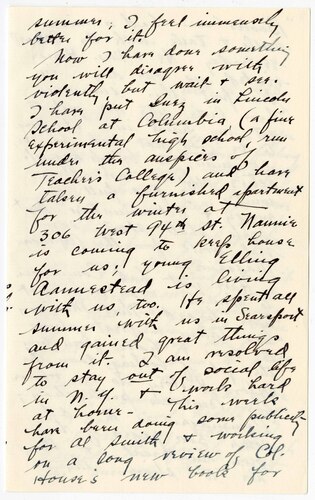 summer; I feel immensely
better for it.
Now I have done something
you will disagree with
violently but wait & see.
I have put in Lincoln
School at Columbia (a fine
experimental high school, run
under the auspices of
Teacher's College) and have
taken a furnished apartment
for the winter at —
306 West 94th St. Nannie
is coming to keep house
for us; young Elling
Aannestead is living
with us, too. He spent all
summer with us in Searsport
and gained great things
from it. I am resolved
to stay out of social life
in N.Y. & work hard
at home — This week
have been doing some publicity
for Al Smith & working
on a long review of Col.
House's new book for